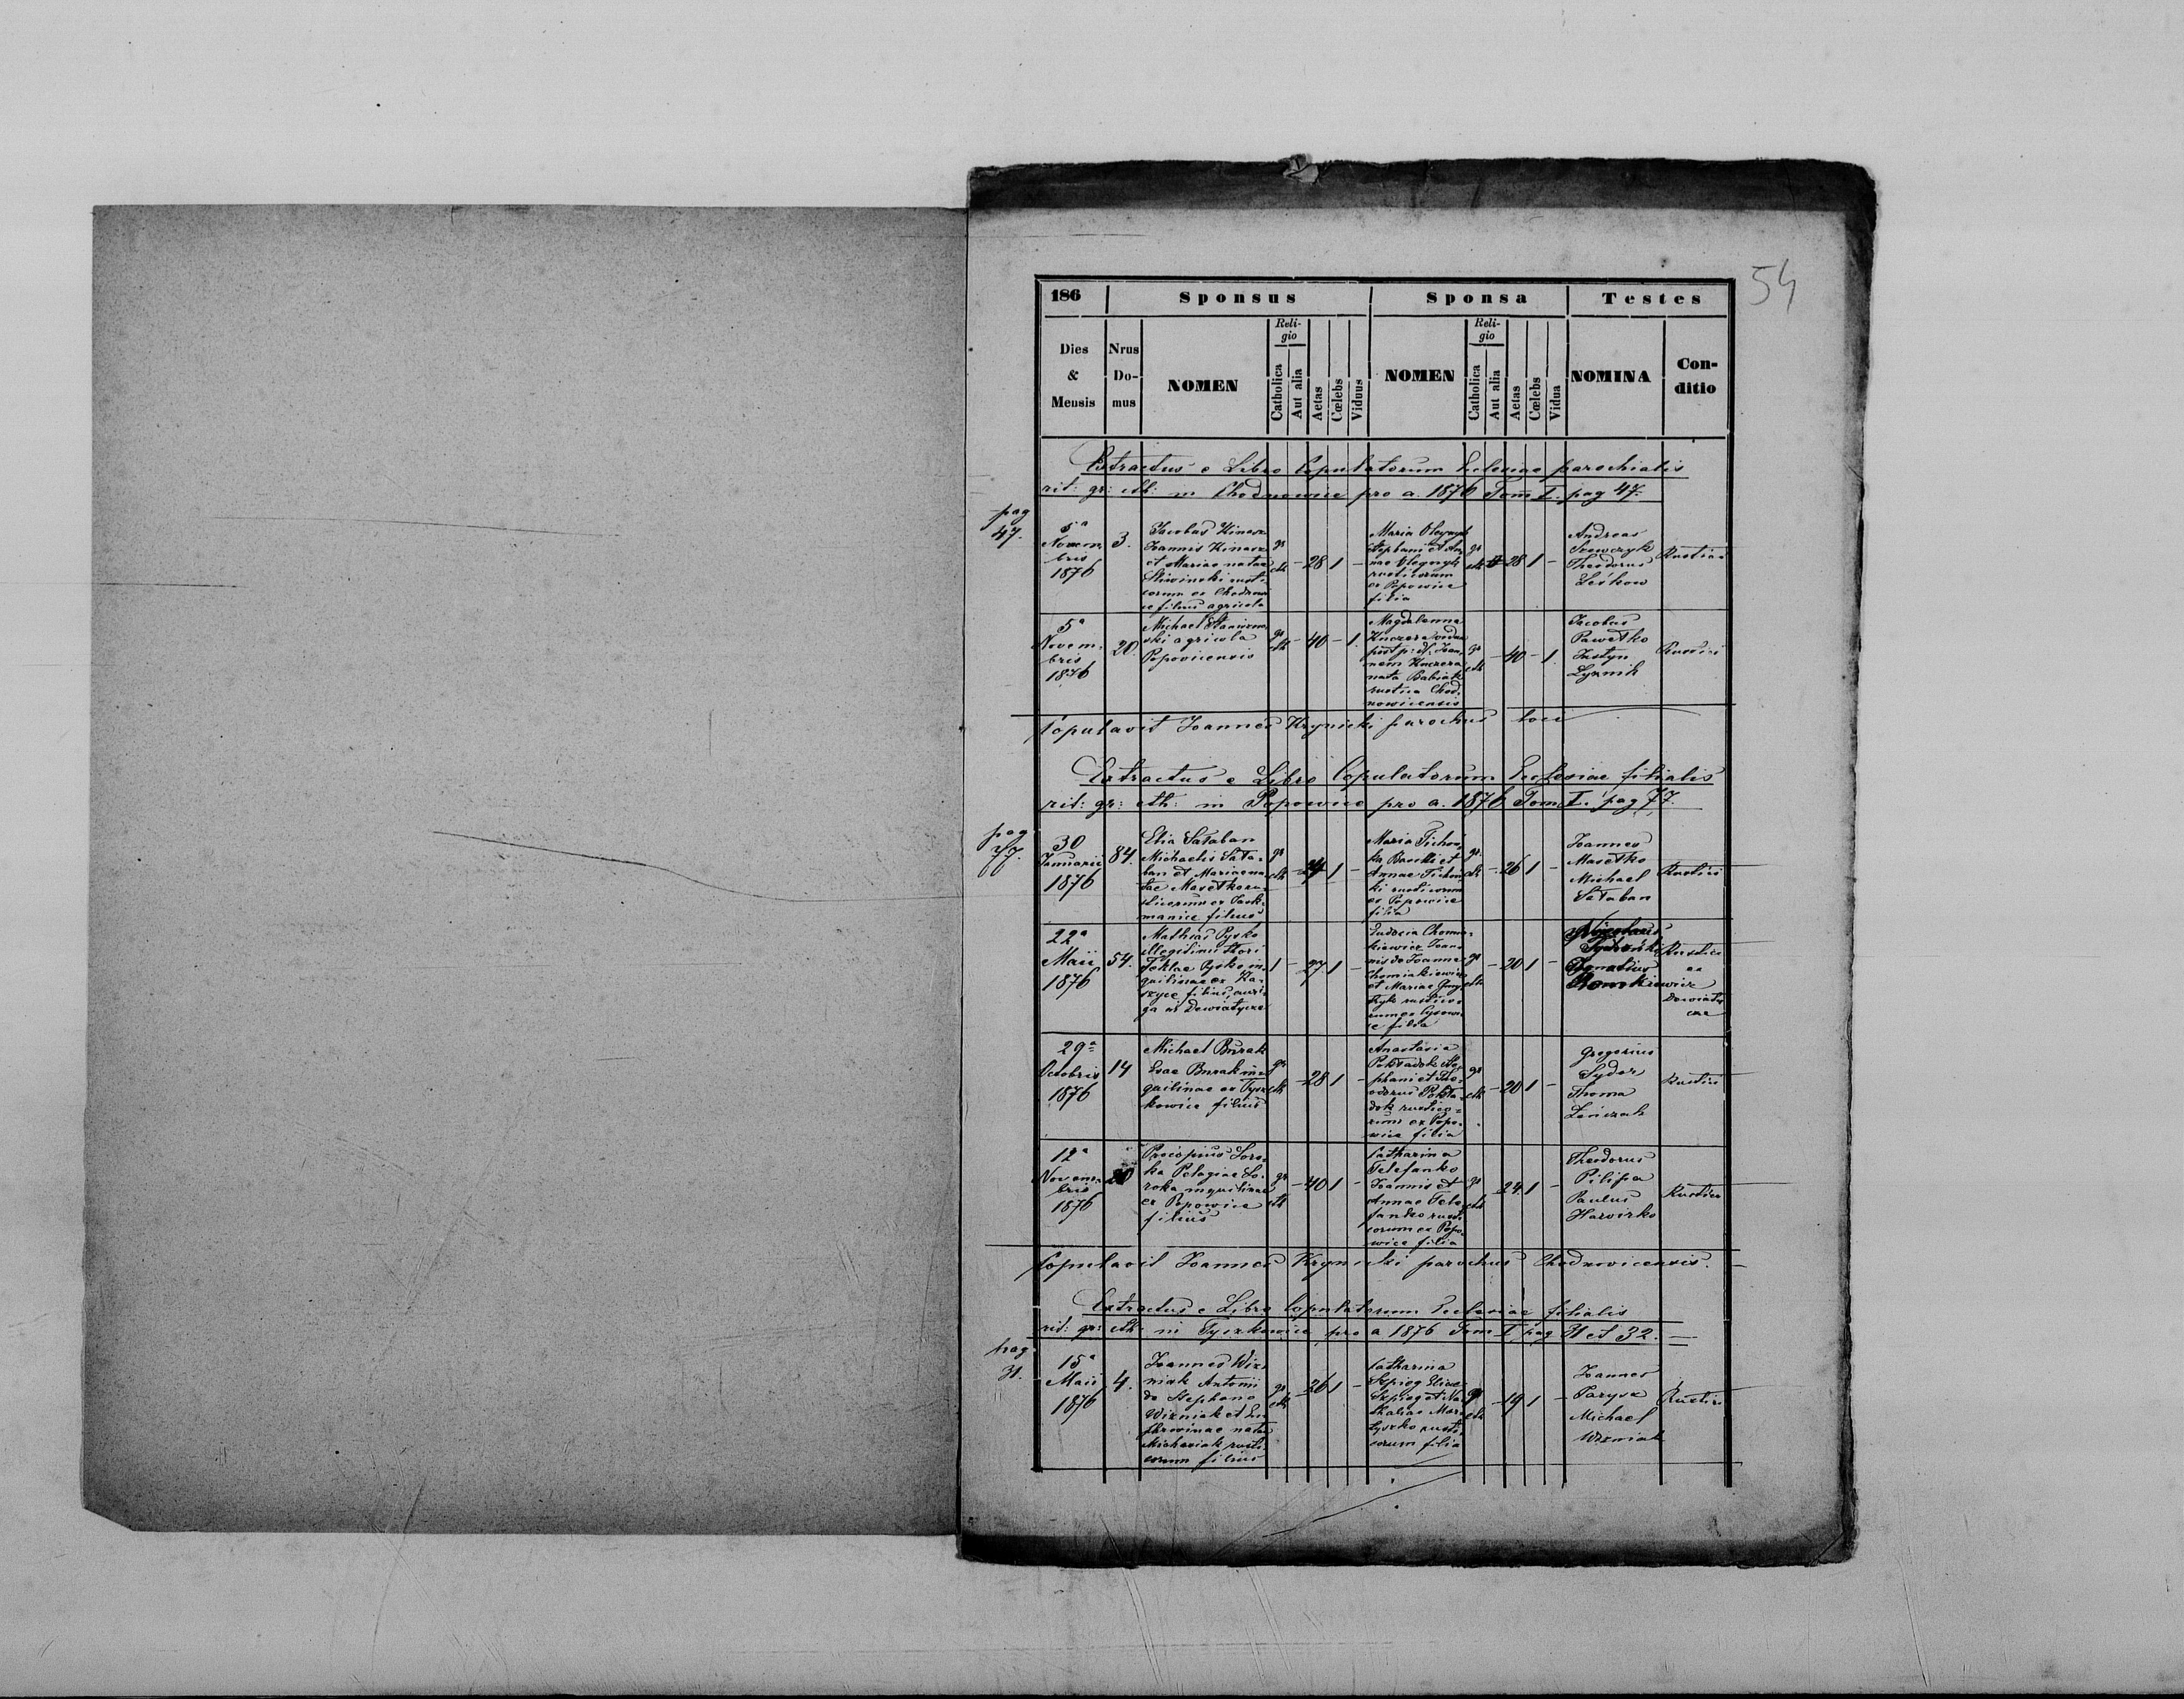 54
186 Sponsus Sponsa Testes
Dies & Mensis
Nrus Domus
NOMEN
Religio
Catholica
Aut alia
Aetas
Cœlebs
Viduus
NOMEN
Religio
Catholica
Aut alia
Aetas
Cœlebs
Vidua
NOMINA
Conditio
Extractus e Libro Copulatorum Eclesiae parochialis
rit: gr: cth: in Chodnowice pro a. 1876 Tom I. pag 47.
pag
47.
5a
Novem
bris
1876
3.
Jacobus Kinasz
Joannis Kinasz
et Mariae natae
Sliwinski rusti
corum ex Chodnowi
ce filius agricola
gr
cth
- 28 1 -
Maria
Stephani et An
nae
rusticorum
ex Popowice
filia
gr
cth
28 1 -
Andreas
Szewczyk
Theodorus
Leśkow
Rustici
5a
Novem
bris
1876
20.
Michael
ski agricola
Popovicensis
gr
cth
- 40 - 1.
Magdalenna
Kuczera vidua
post p: d: Joan
nem Kuczera
nata Babiak
rustica Chod
nowicensis
gr
cth
- 40 - 1.
Jacobus
Pawełko
Justyn
Łyznik
Rustici
Copulavit Joannes Krynicki parochus loci
Extractus e Libro Copulatorum Ecclesiae filialis
rit: gr: cth: in Popowice pro a. 1876 Tom I. pag 77.
pag
77.
30
Januarii
1876
84.
Elia Sałaban
Michaelis Sała
ban et Mariae na
tae Masełko ru
sticorum ex Jak
manice filius
gr
cth
- 24 1 -
Maria Tichow
ka Basilii et
Annae Tichow
ki rusticorum
ex Popowice
filia
gr.
cth
- 26 1 -
Joannes
Masełko
Michael
Sałaban
Rustici
22a
Maii
1876
54.
Mathias Pysko
illegitimi thori
Teklae Pysko in
quilinae ex Ka
szyce filius, auri
ga in Dewiatycze
1 - 27 1 -
Eudocia Chomia
kiewicz Joan
nis de Joanne
Chomiakiewicz
et Mariae
rustico
rum ex
filia
gr
cth
- 20 1 -
Nicolaus
Ignatius
Rustici
ex
Dewiaty
cze
29a
Octobris
1876
14
Michael Burak
Evae Burak in
quilinae ex Tysz
kowice filius
gr
cth
- 28 1 -
Anastasia
Pokładok Ste
phani et The
odorae Pokła
dok rustico
rum ex Popo
wice filia
gr
cth
- 20 1 -
Gregorius
Sydor
Thoma
Leńczak
Rustici
12a
Novem
bris
1876
Procopius Soro
ka Pelagiae So
roka inquilinae
ex Popowice
filius
gr
cth
- 40 1 -
Catharina
Telefanko
Joannis et
Annae Tele
fanko rusti
corum ex Popo
wice filia
gr
cth
24 1 -
Theodorus
Pilipa
Paulus
Hawirko
Rustici
Copulavit Joannes Krynicki parochus Chodnovicensis.
Extractus e Libro Copulatorum Ecclesiae filialis
rit: gr: cth: in Tyszkowice pro a 1876 Tom I pag 31 et 32.
pag
31.
15a
Maii
1876
4.
Joannes Woz
niak Antonii
de Stephano
Wozniak et Eu
phrosinae natae
Michasiak rusti
corum filius
gr
cth
- 26 1 -
Catharina
Szpieg Eliae
Szpieg et Na
thaliae Mar
tyszko rusti
corum filia
gr
cth
- 19 1 -
Joannes
Parysz
Michael
Wozniak
Rustici